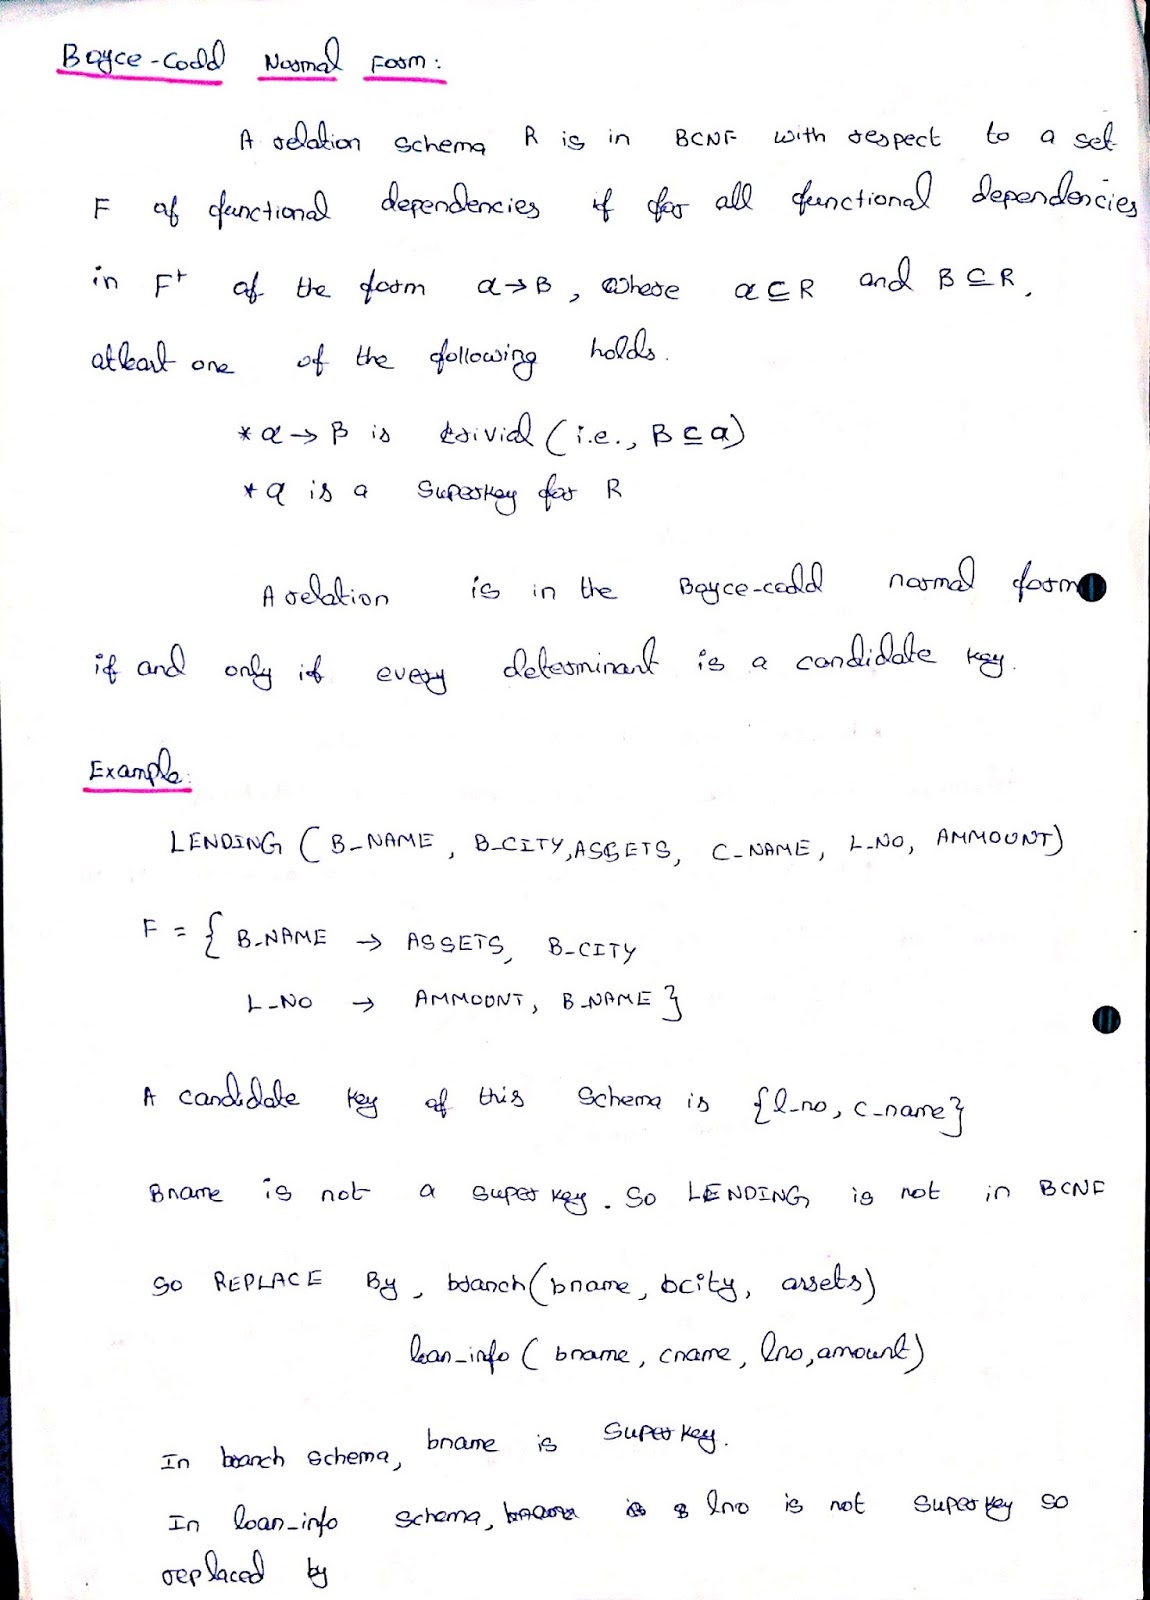 Boyce-Codd Normal Form:
A relation schema R is in BCNF with respect to a set
F of functional dependencies if for all functional dependencies
in F+ of the form α→B, where α⊆R and B⊆R,
atleast one of the following holds.
* α→β is trivial (i.e., B⊆α)
* α is a superkey for R
A relation is in the Boyce-codd normal form
if and only if every determinant is a candidate key.
Example:
LENDING (B_NAME, B_CITY, ASSETS, C_NAME, L_NO, AMMOUNT)
F = { B_NAME → ASSETS, B_CITY
L_NO → AMMOUNT, B_NAME }
A candidate key of this schema is {l_no, c_name}
Bname is not a super key. So LENDING is not in BCNF
So REPLACE By, branch(bname, bcity, assets)
loan_info (bname, cname, lno, amount)
In branch schema, bname is super key.
In loan_info schema, lno is not super key so
replaced by